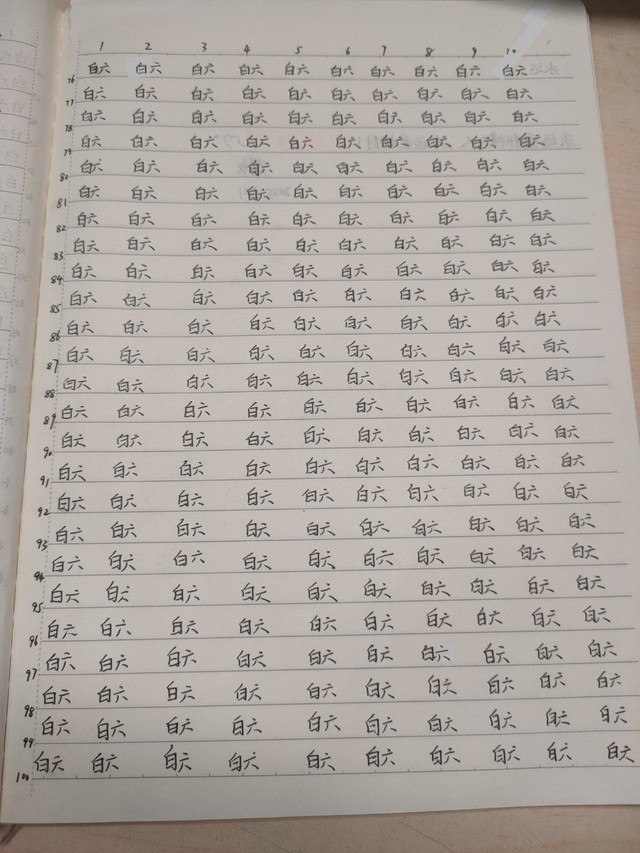 1 2 3 4 5 6 7 8 9 10
76 白六 白六 白六 白六 白六 白六 白六 白六 白六 白六
77 白六 白六 白六 白六 白六 白六 白六 白六 白六 白六
78 白六 白六 白六 白六 白六 白六 白六 白六 白六 白六
79 白六 白六 白六 白六 白六 白六 白六 白六 白六 白六
80 白六 白六 白六 白六 白六 白六 白六 白六 白六 白六
81 白六 白六 白六 白六 白六 白六 白六 白六 白六 白六
82 白六 白六 白六 白六 白六 白六 白六 白六 白六 白六
83 白六 白六 白六 白六 白六 白六 白六 白六 白六 白六
84 白六 白六 白六 白六 白六 白六 白六 白六 白六 白六
85 白六 白六 白六 白六 白六 白六 白六 白六 白六 白六
86 白六 白六 白六 白六 白六 白六 白六 白六 白六 白六
87 白六 白六 白六 白六 白六 白六 白六 白六 白六 白六
88 白六 白六 白六 白六 白六 白六 白六 白六 白六 白六
89 白六 白六 白六 白六 白六 白六 白六 白六 白六 白六
90 白六 白六 白六 白六 白六 白六 白六 白六 白六 白六
91 白六 白六 白六 白六 白六 白六 白六 白六 白六 白六
92 白六 白六 白六 白六 白六 白六 白六 白六 白六 白六
93 白六 白六 白六 白六 白六 白六 白六 白六 白六 白六
94 白六 白六 白六 白六 白六 白六 白六 白六 白六 白六
95 白六 白六 白六 白六 白六 白六 白六 白六 白六 白六
96 白六 白六 白六 白六 白六 白六 白六 白六 白六 白六
97 白六 白六 白六 白六 白六 白六 白六 白六 白六 白六
98 白六 白六 白六 白六 白六 白六 白六 白六 白六 白六
99 白六 白六 白六 白六 白六 白六 白六 白六 白六 白六
100 白六 白六 白六 白六 白六 白六 白六 白六 白六 白六